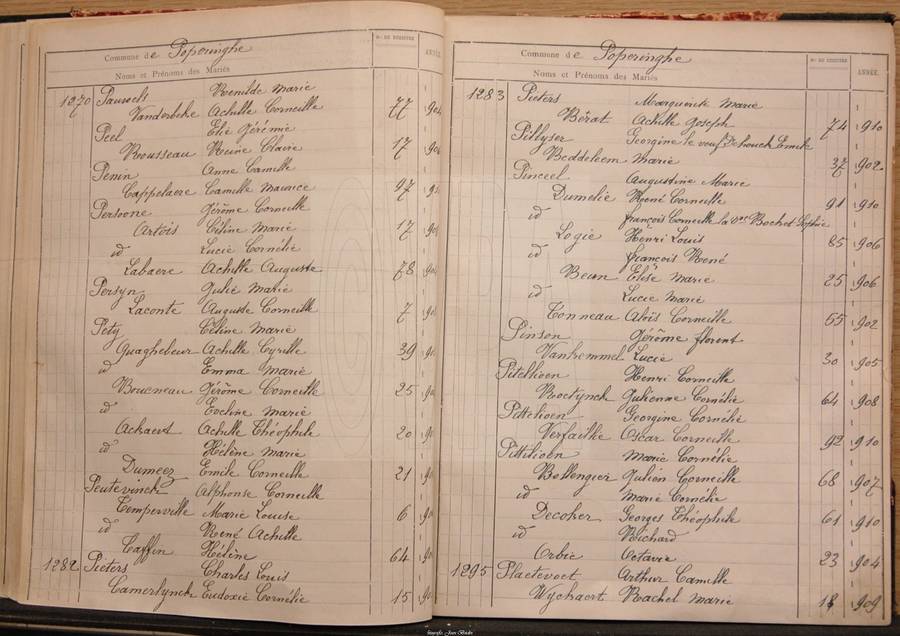 Commune de Poperinghe
Noms et Prénoms des Mariés
No DE REGISTRE
ANNÉE
1270 Pauwels Renilde Marie
Vanderbeke Achille Corneille 77 904
Peel Elie Jérémie
Rousseau Reine Claire 17 90
Penin Anne Camille
Cappelaere Camille Maurice 97 9
Persoone Jérôme Corneille
Artois Céline Marie 17 90
id Lucie Cornélie
Labaere Achille Auguste 78 90
Persyn Julie Marie
Laconte Auguste Corneille 7 90
Pety Céline Marie
Quaghebeur Achille Cyrille 39 90
id Emma Marie
Boucneau Jérôme Corneille 25 90
id Eveline Marie
Ackaert Achille Théophile 20 90
id Hélène Marie
Dumeez Emile Corneille 21 90
Peutevinck Alphonse Corneille
Temperville Marie Louise 6 90
id René Achille
Caffin Hélène 64 90
1282 Pieters Charles Louis
Camerlynck Eudoxie Cornélie 15 90
Commune de Poperinghe
Noms et Prénoms des Mariés
No DE REGISTRE
ANNÉE
1283 Pieters Marguerite Marie
Bérat Achille Joseph 74 910
Pillyser Georgine le veuf Dehouck Emile
Beddeleem Marie 37 902
Pinceel Augustine Marie
Dumelie René Corneille 91 910
id François Corneille la Vve Bochet Sophie
Logie Henri Louis 85 906
id François René
Beun Elise Marie 25 906
id Lucie Marie
Tonneau Aloïs Corneille 55 902
Pinson Jérôme florent
Vanhemmel Lucie 30 905
Pitellioen Henri Corneille
Roelynck Julienne Cornélie 64 908
Pittilioen Georgine Cornélie
Verfaillie Oscar Corneille 92 910
Pittilioen Marie Cornélie
Bollengier Julien Corneille 68 907
id Marie Cornélie
Decoker Georges Théophile 61 910
id Richard
Orbie Octavie 23 904
1295 Plaetevoet Arthur Camille
Wychaert Rachel Marie 18 909